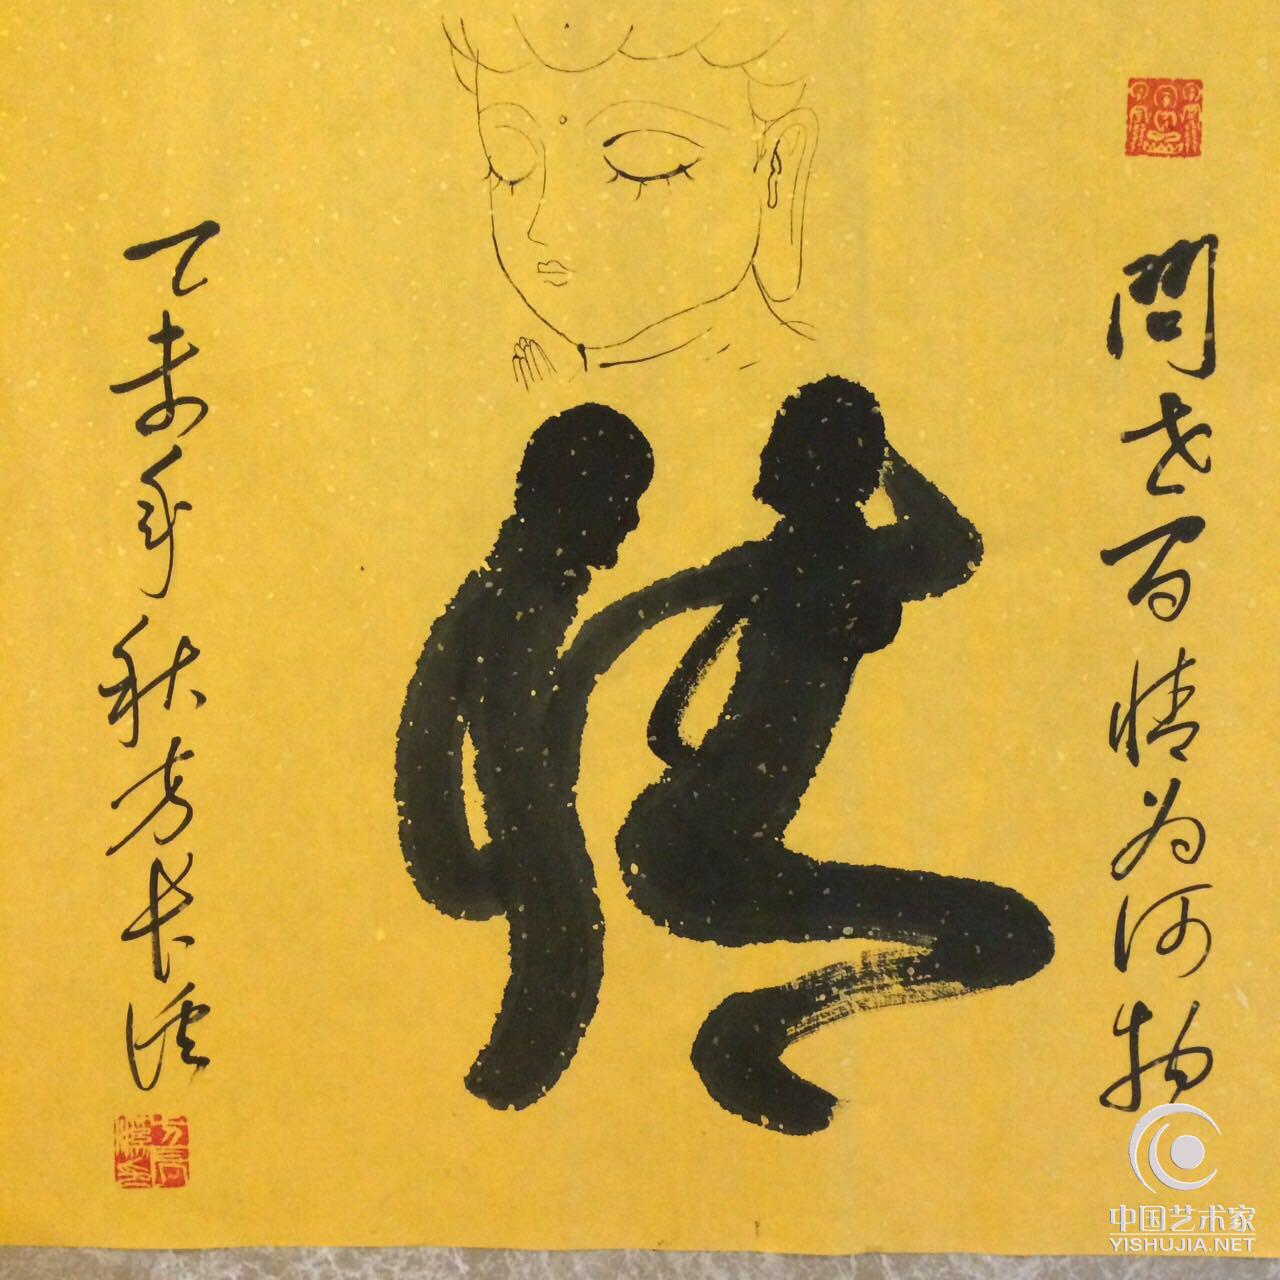 問世间情为何物
乙未年秋方长
中国艺术家
YISHUJIA.NET